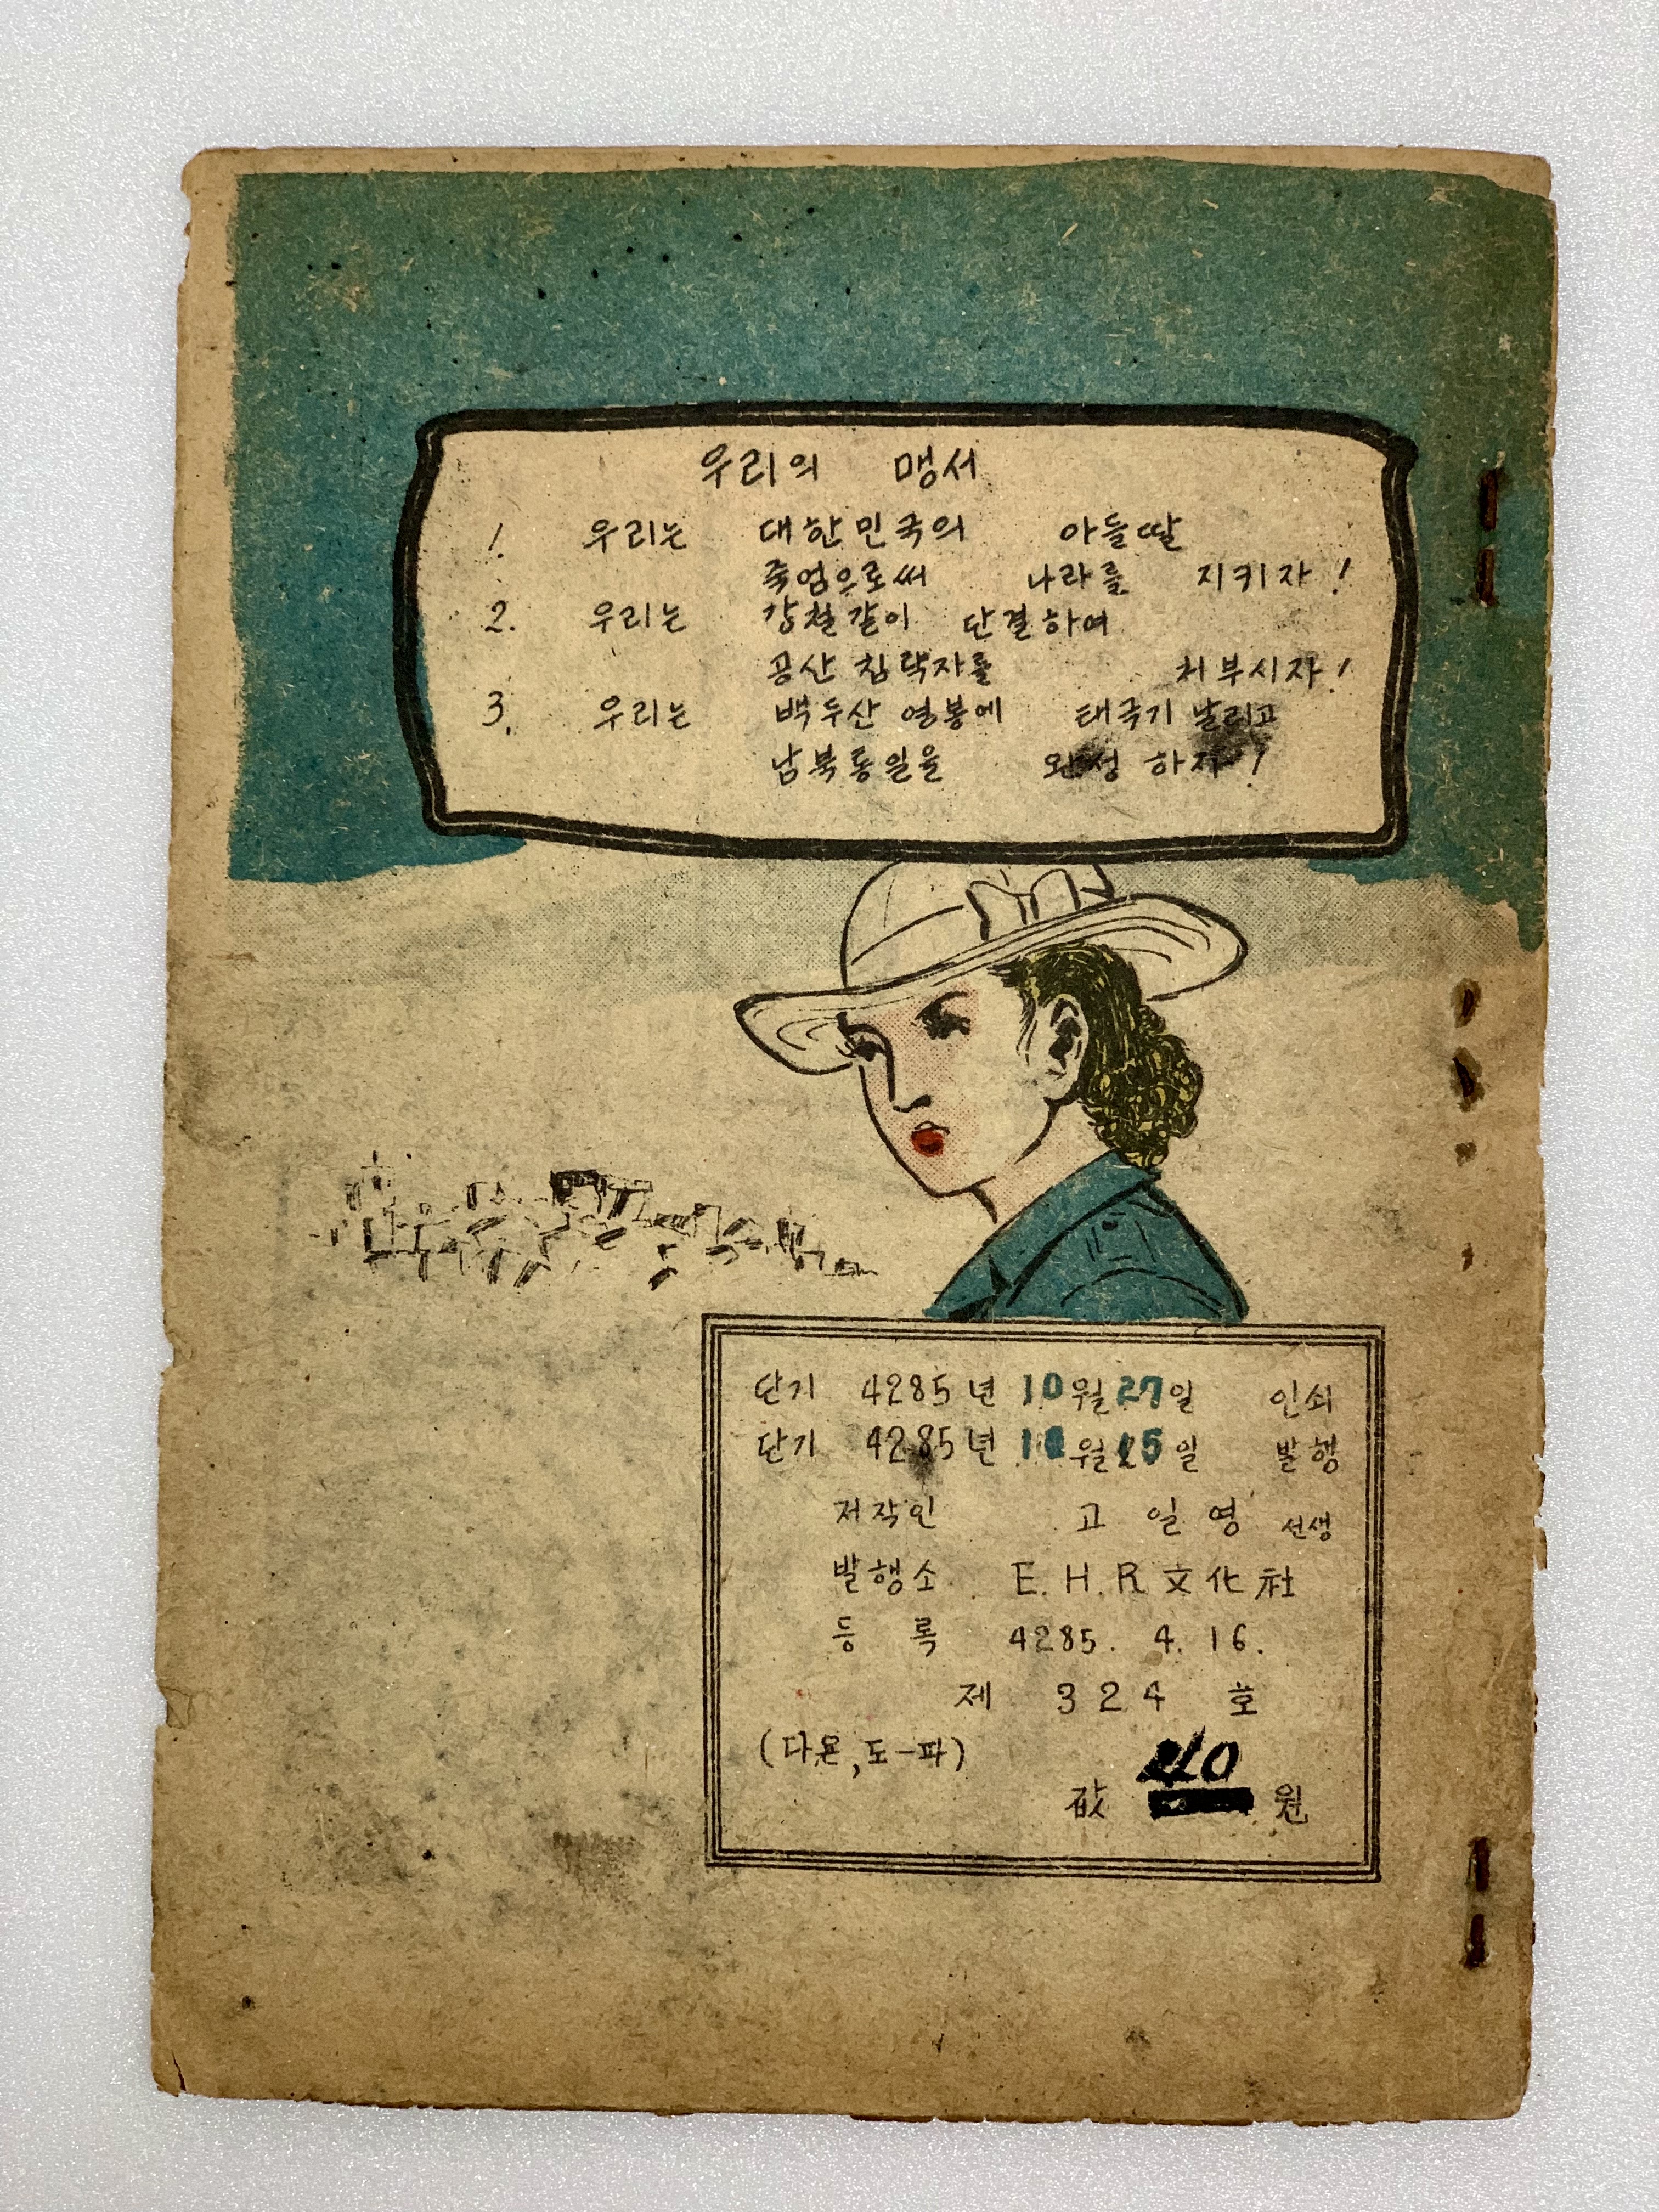 우리의 맹서
1. 우리는 대한민국의 아들딸
죽엄으로써 나라를 지키자!
2. 우리는 강철같이 단결하여
공산 침략자를 처부시자!
3. 우리는 백두산 영봉에 태극기 날리고
남북통일을 완성 하자!
단기 4285년 10월 27일 인쇄
단기 4285년 월 15일 발행
저작인 고일영 선생
발행소 E.H.R 文化社
등록 4285. 4. 16.
제 324 호
(다몬,도-파)
값 40 원